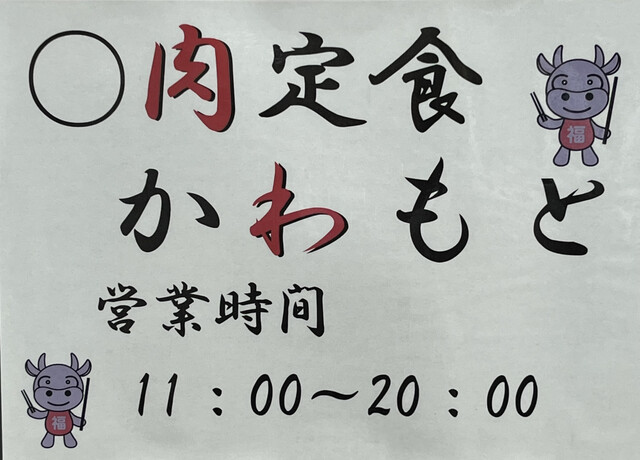 ○肉定食
福
かわもと
営業時間
11：00～20：00
福